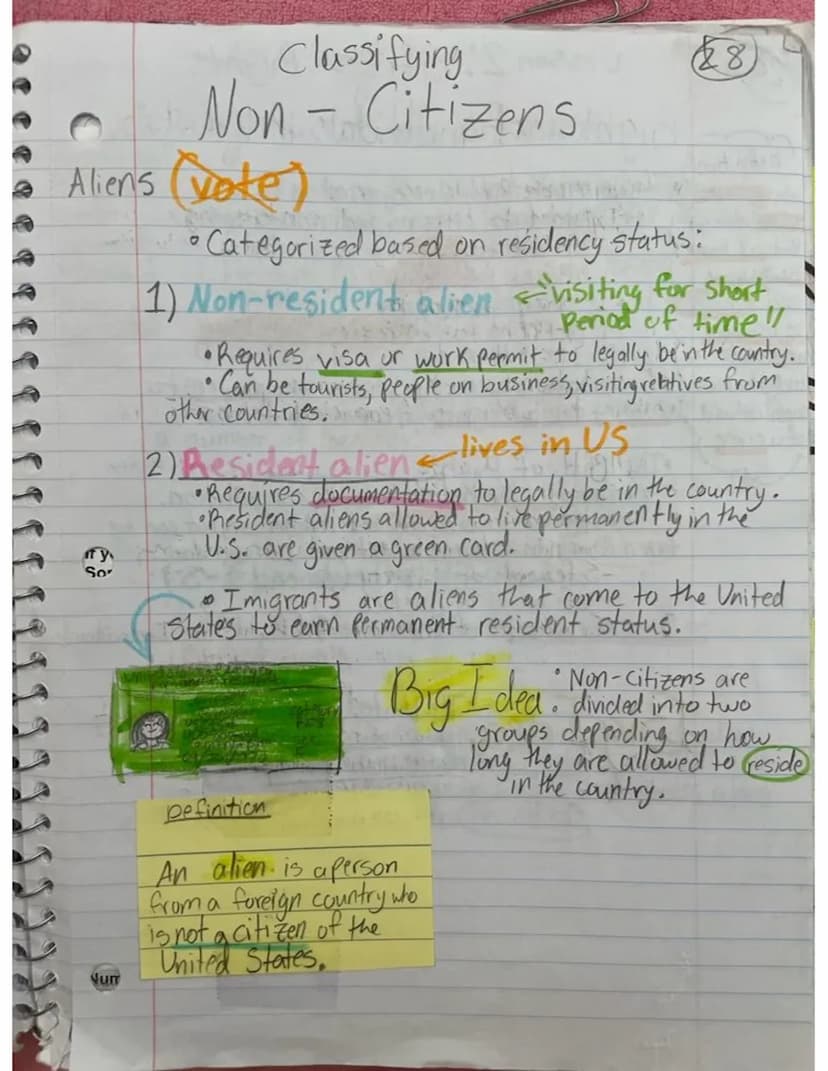 Classifying
28
Non - Citizens
Aliens (vote)
• Categorized based on residency status:
1) Non-resident alien ← "visiting for short
period of time"
• Requires visa or work permit to legally be in the country.
• Can be tourists, people on business, visiting relatives from
other countries.
2) Resident alien ← lives in US
• Requires documentation to legally be in the country.
• Resident aliens allowed to live permanently in the
U.S. are given a green card.
• Imigrants are aliens that come to the United
States to earn permanent resident status.
Big Idea: • Non-citizens are
divided into two
groups depending on how
long they are allowed to reside
in the country.
Definition
An alien is a person
from a foreign country who
is not a citizen of the
United States.